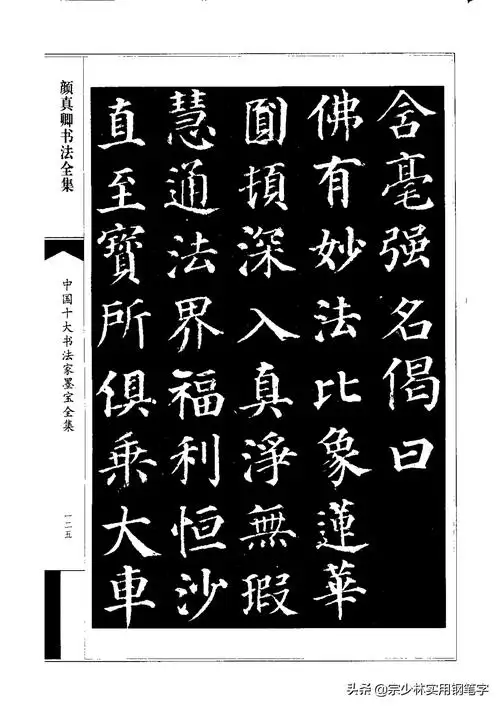 含毫强名偈曰
佛有妙法比象蓮華
圓頓深入真淨無瑕
慧通法界福利恒沙
直至寶所俱乘大車
颜真卿书法全集
中国十大书法家墨宝全集
一二五
头条 @宗少林实用钢笔字